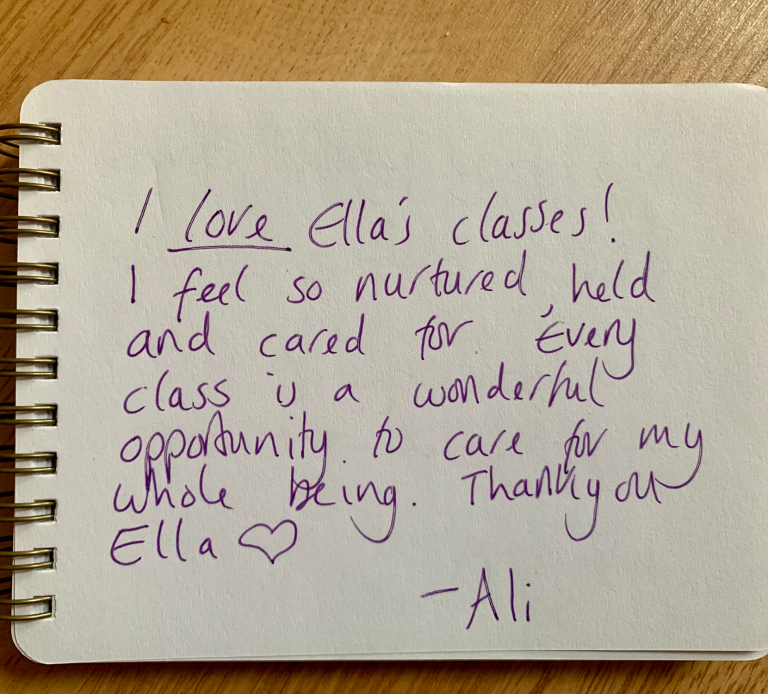 I love Ella's classes!
I feel so nurtured, held
and cared for. Every
class is a wonderful
opportunity to care for my
whole being. Thankyou
Ella ♡
- Ali